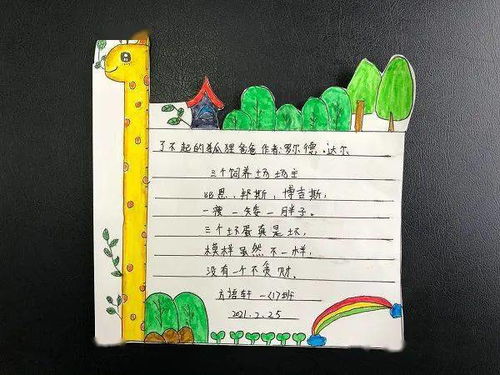 了不起的狐狸爸爸 作者:罗尔德·达尔
三个饲养场场主
邦斯、博吉斯,
一瘦一矮一胖子。
三个坏蛋真是坏,
模样虽然不一样,
没有一个不贪财。
方语轩 一(1)班
2021.2.25